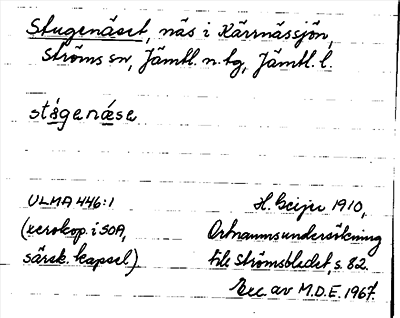 Stugenäset, näs i Kärrnässjön,
Ströms sn, Jämtl. n. tg, Jämtl. l.
stågenǽse
ULMA 446:1
(xerokop. i SOA,
särsk. kapsel)
H. Geijer 1910,
Ortnamnsundersökning
från Strömsbledet, s. 82.
Exc. av M.D.E. 1967.